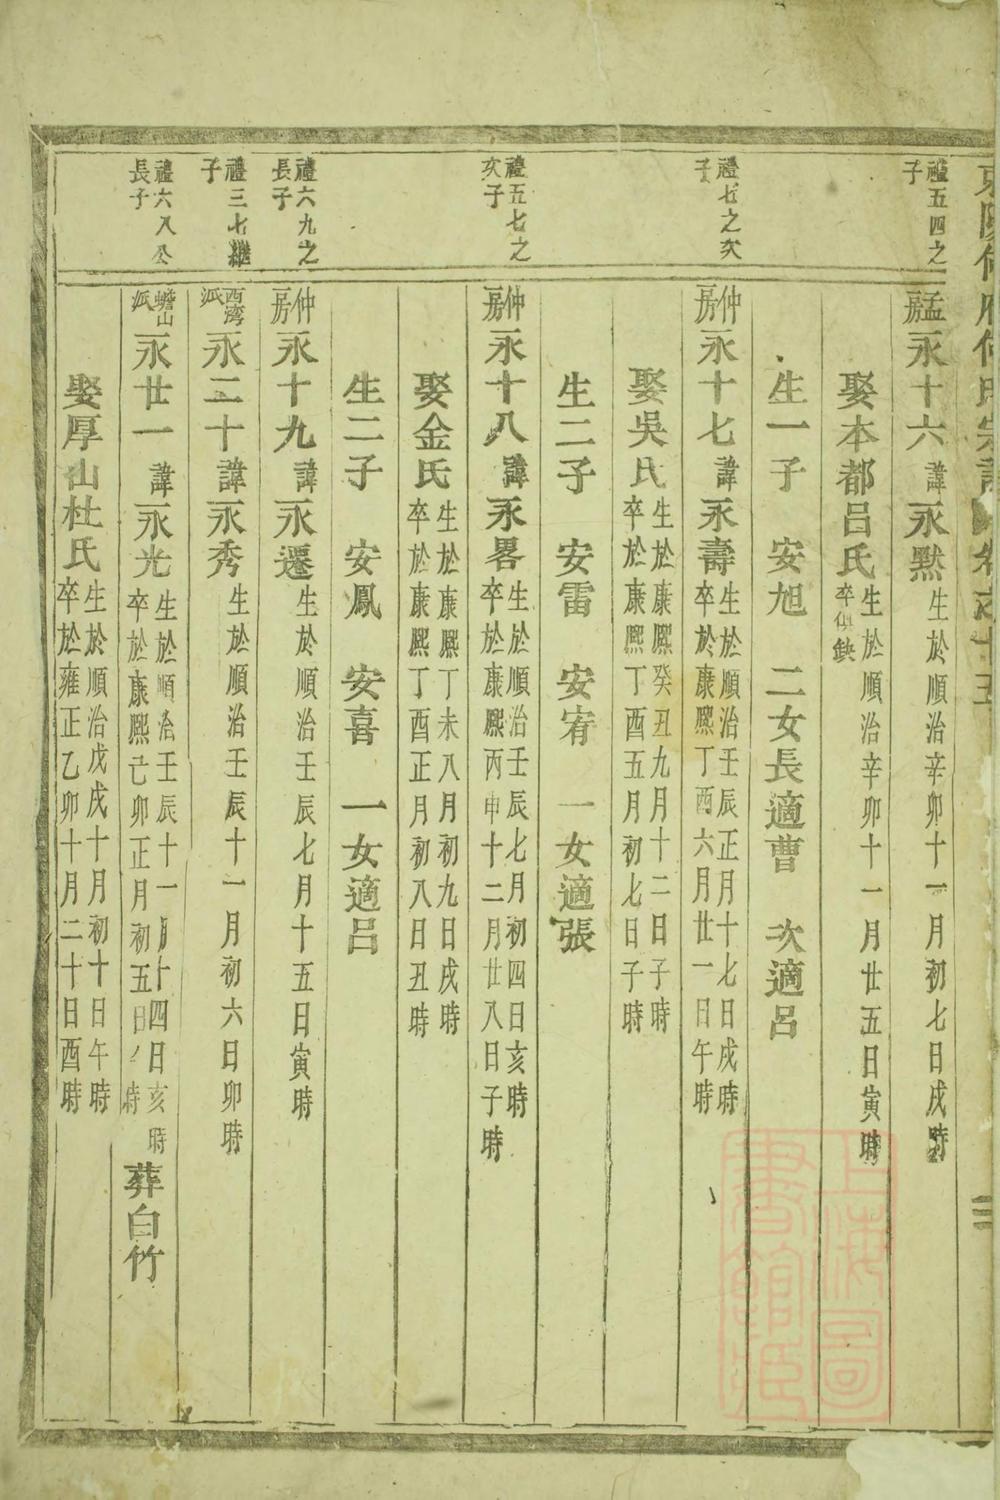 禮五四之子
孟房永十六諱永黙生於順治辛卯十一月初七日戌時
娶本都呂氏生於順治辛卯十一月廿五日寅時卒俱鈌
生一子 安旭 二女長適曹 次適呂
禮七之次子
仲房永十七諱永壽生於順治壬辰正月十七日戌時卒於康熙丁酉六月廿一日午時
娶吳氏生於康熙癸丑九月十二日子時卒於康熙丁酉五月初七日子時
生二子 安雷 安宥 一女適張
禮五七之次子
仲房永十八諱永畧生於順治壬辰七月初四日亥時卒於康熙丙申十二月廿八日子時
娶金氏生於康熙丁未八月初九日戌時卒於康熙丁酉正月初八日丑時
生二子 安鳳 安喜 一女適呂
禮六九之長子
仲房永十九諱永遷生於順治壬辰七月十五日寅時
禮三七繼子
西湾派永二十諱永秀生於順治壬辰十一月初六日卯時
禮六八公長子
蟾山派永廿一諱永光生於順治壬辰十一月十四日亥時卒於康熙己卯正月初五日時葬白竹
娶厚山杜氏生於順治戊戌十月初十日午時卒於雍正乙卯十月二十日酉時
上海圖書館藏